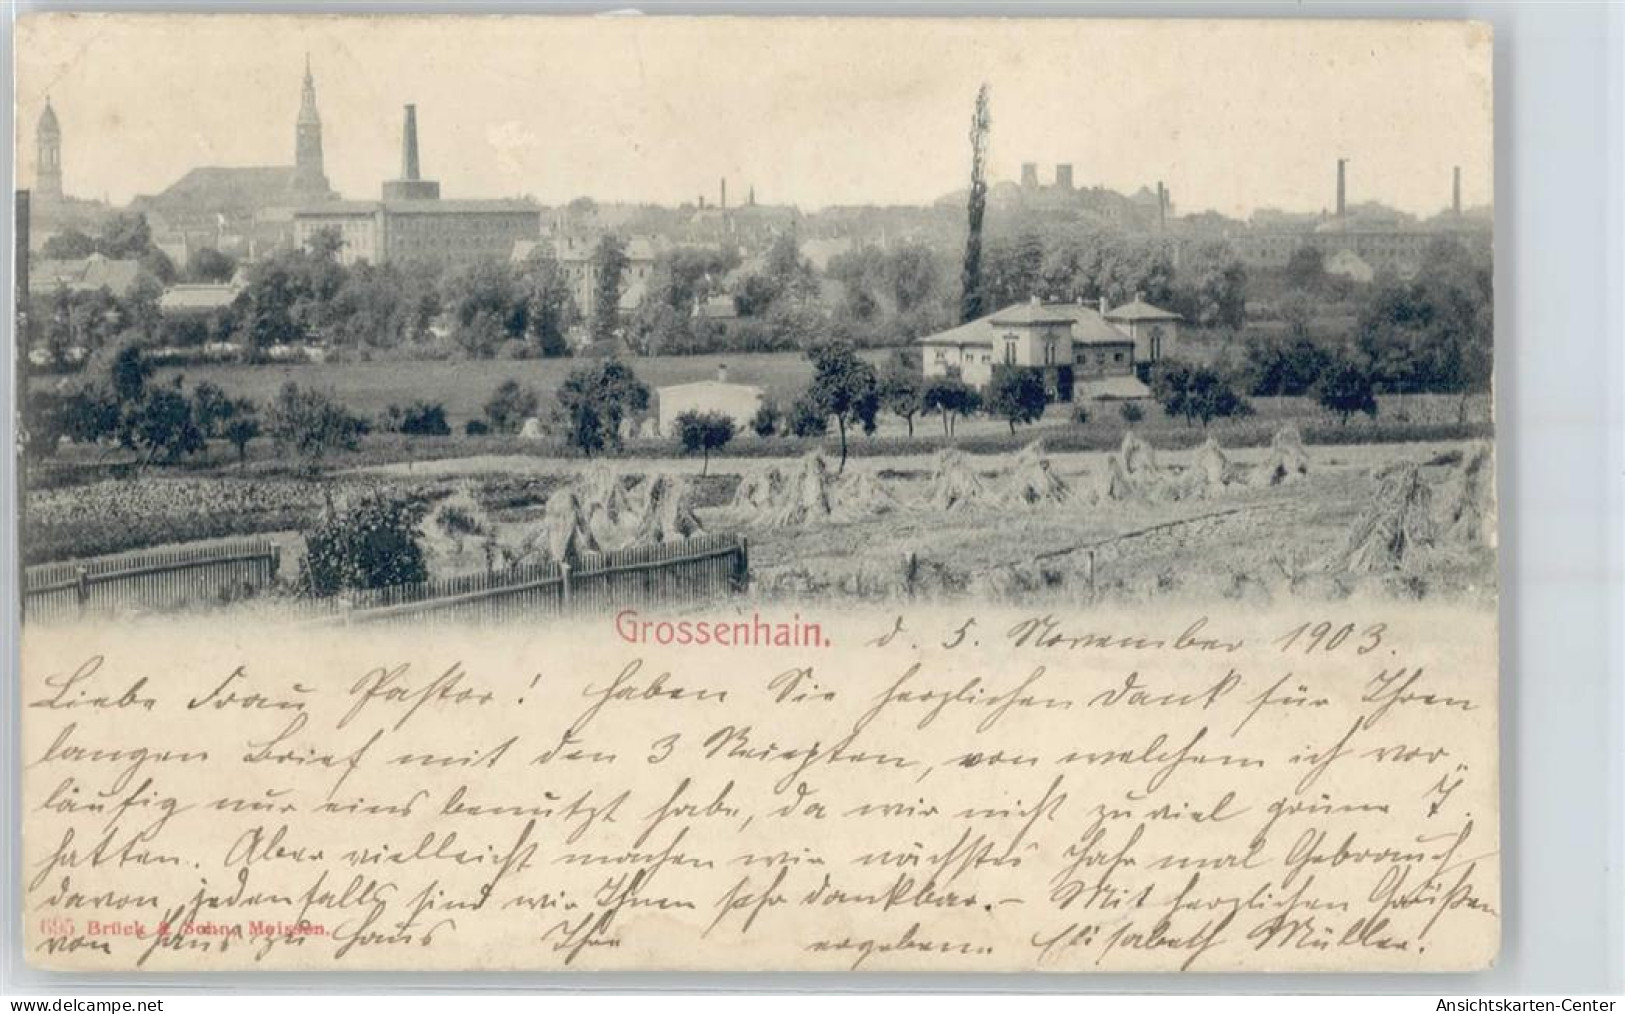 Grossenhain. d. 5. November 1903.
Liebe Frau Pastor! Haben Sie herzlichen Dank für Ihren
langen Brief mit den 3 Rezepten, von welchem ich vor„
läufig nur eins benutzt habe, da wir nicht zu viel grüne T.
hatten. Aber vielleicht machen wir nächstes Jahr mal Gebrauch
davon, jedenfalls sind wir Ihnen sehr dankbar. – Mit herzlichen Grüßen
695 Brück & Sohn, Meissen.
von Haus zu Haus Ihre ergeben. Elisabeth Müller.
www.ansichtskarten-center.de
Ansichtskarten-Center